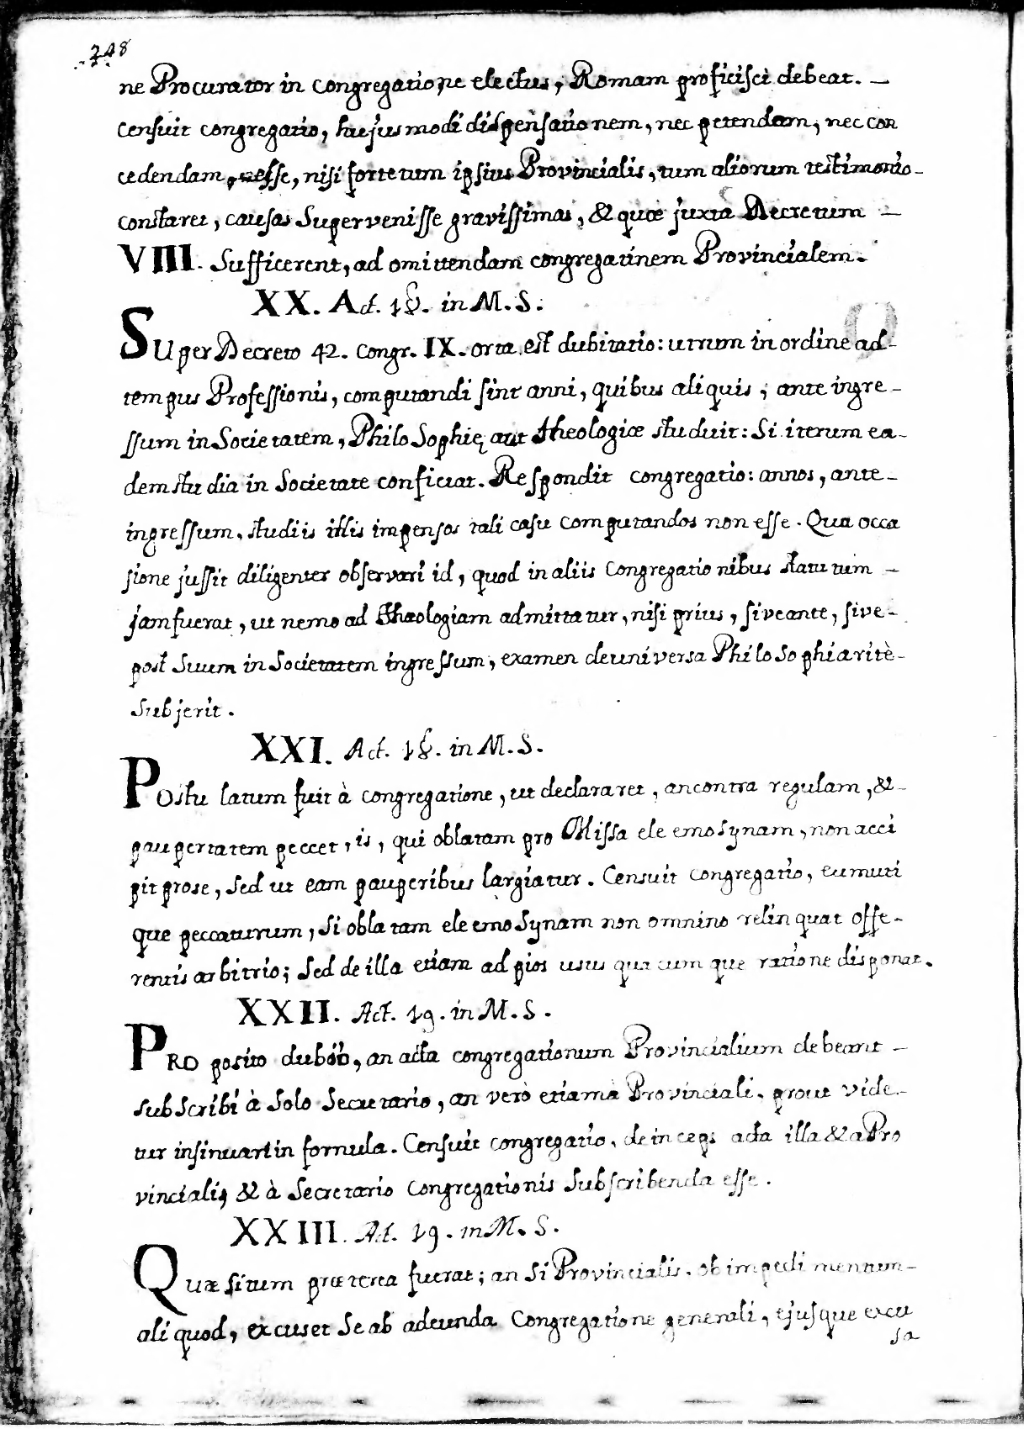 248
ne Procurator in congregatione electus, Romam proficisci debeat. —
Censuit congregatio, hujusmodi dispensationem, nec petendam, nec con
cedendam, esse, nisi forte tum ipsius Provincialis, tum aliorum testimonio-
constaret, causas Supervenisse gravissimas, & quæ juxta Decretum —
VIII. Sufficerent, ad omittendam congregatinem Provincialem.
XX. Act. 18. in M. S.
SUper Decreto 42. Congr. IX. orta est dubitatio: utrum in ordine ad-
tempus Professionis, computandi sint anni, quibus aliquis, ante ingre-
ssum in Societatem, Philosophię aut theologiæ studuit: Si iterum ea-
dem studia in Societate conficiat. Respondit congregatio: annos, ante-
ingressum, studiis illis impensos tali casu computandos non esse. Qua occa
sione jussit diligenter observari id, quod in aliis Congregationibus statutum —
jam fuerat, ut nemo ad theologiam admittatur, nisi prius, sive ante, sive-
post Suum in Societatem ingressum, examen de universa Philosophia ritè-
Subjerit.
XXI. Act. 18. in M. S.
POstulatum fuit à congregatione, ut declararet, an contra regulam, &-
paupertatem peccet, is, qui oblatam pro Missa eleemosynam, non acci
pit pro se, Sed ut eam pauperibus largiatur. Censuit congregatio, eum uti
que peccaturum, Si oblatam eleemosynam non omnino relinquat offe-
rentis arbitrio; Sed de illa etiam ad pios usus quacumque ratione disponat.
XXII. Act. 19. in M. S.
PRO posito dubio, an acta congregationum Provincialium debeant —
subscribi à Solo Secretario, an verò etiam à Provinciali, prout vide-
tur insinuari in formula. Censuit congregatio, deinceps acta illa & a Pro
vinciali, & à Secretario Congregationis Subscribenda esse.
XXIII. Act. 19. in M. S.
QUæsitum præterea fuerat; an Si Provincialis, ob impedimentum-
aliquod, excuset Se ab adeunda Congregatione generali, ejusque excu
sa